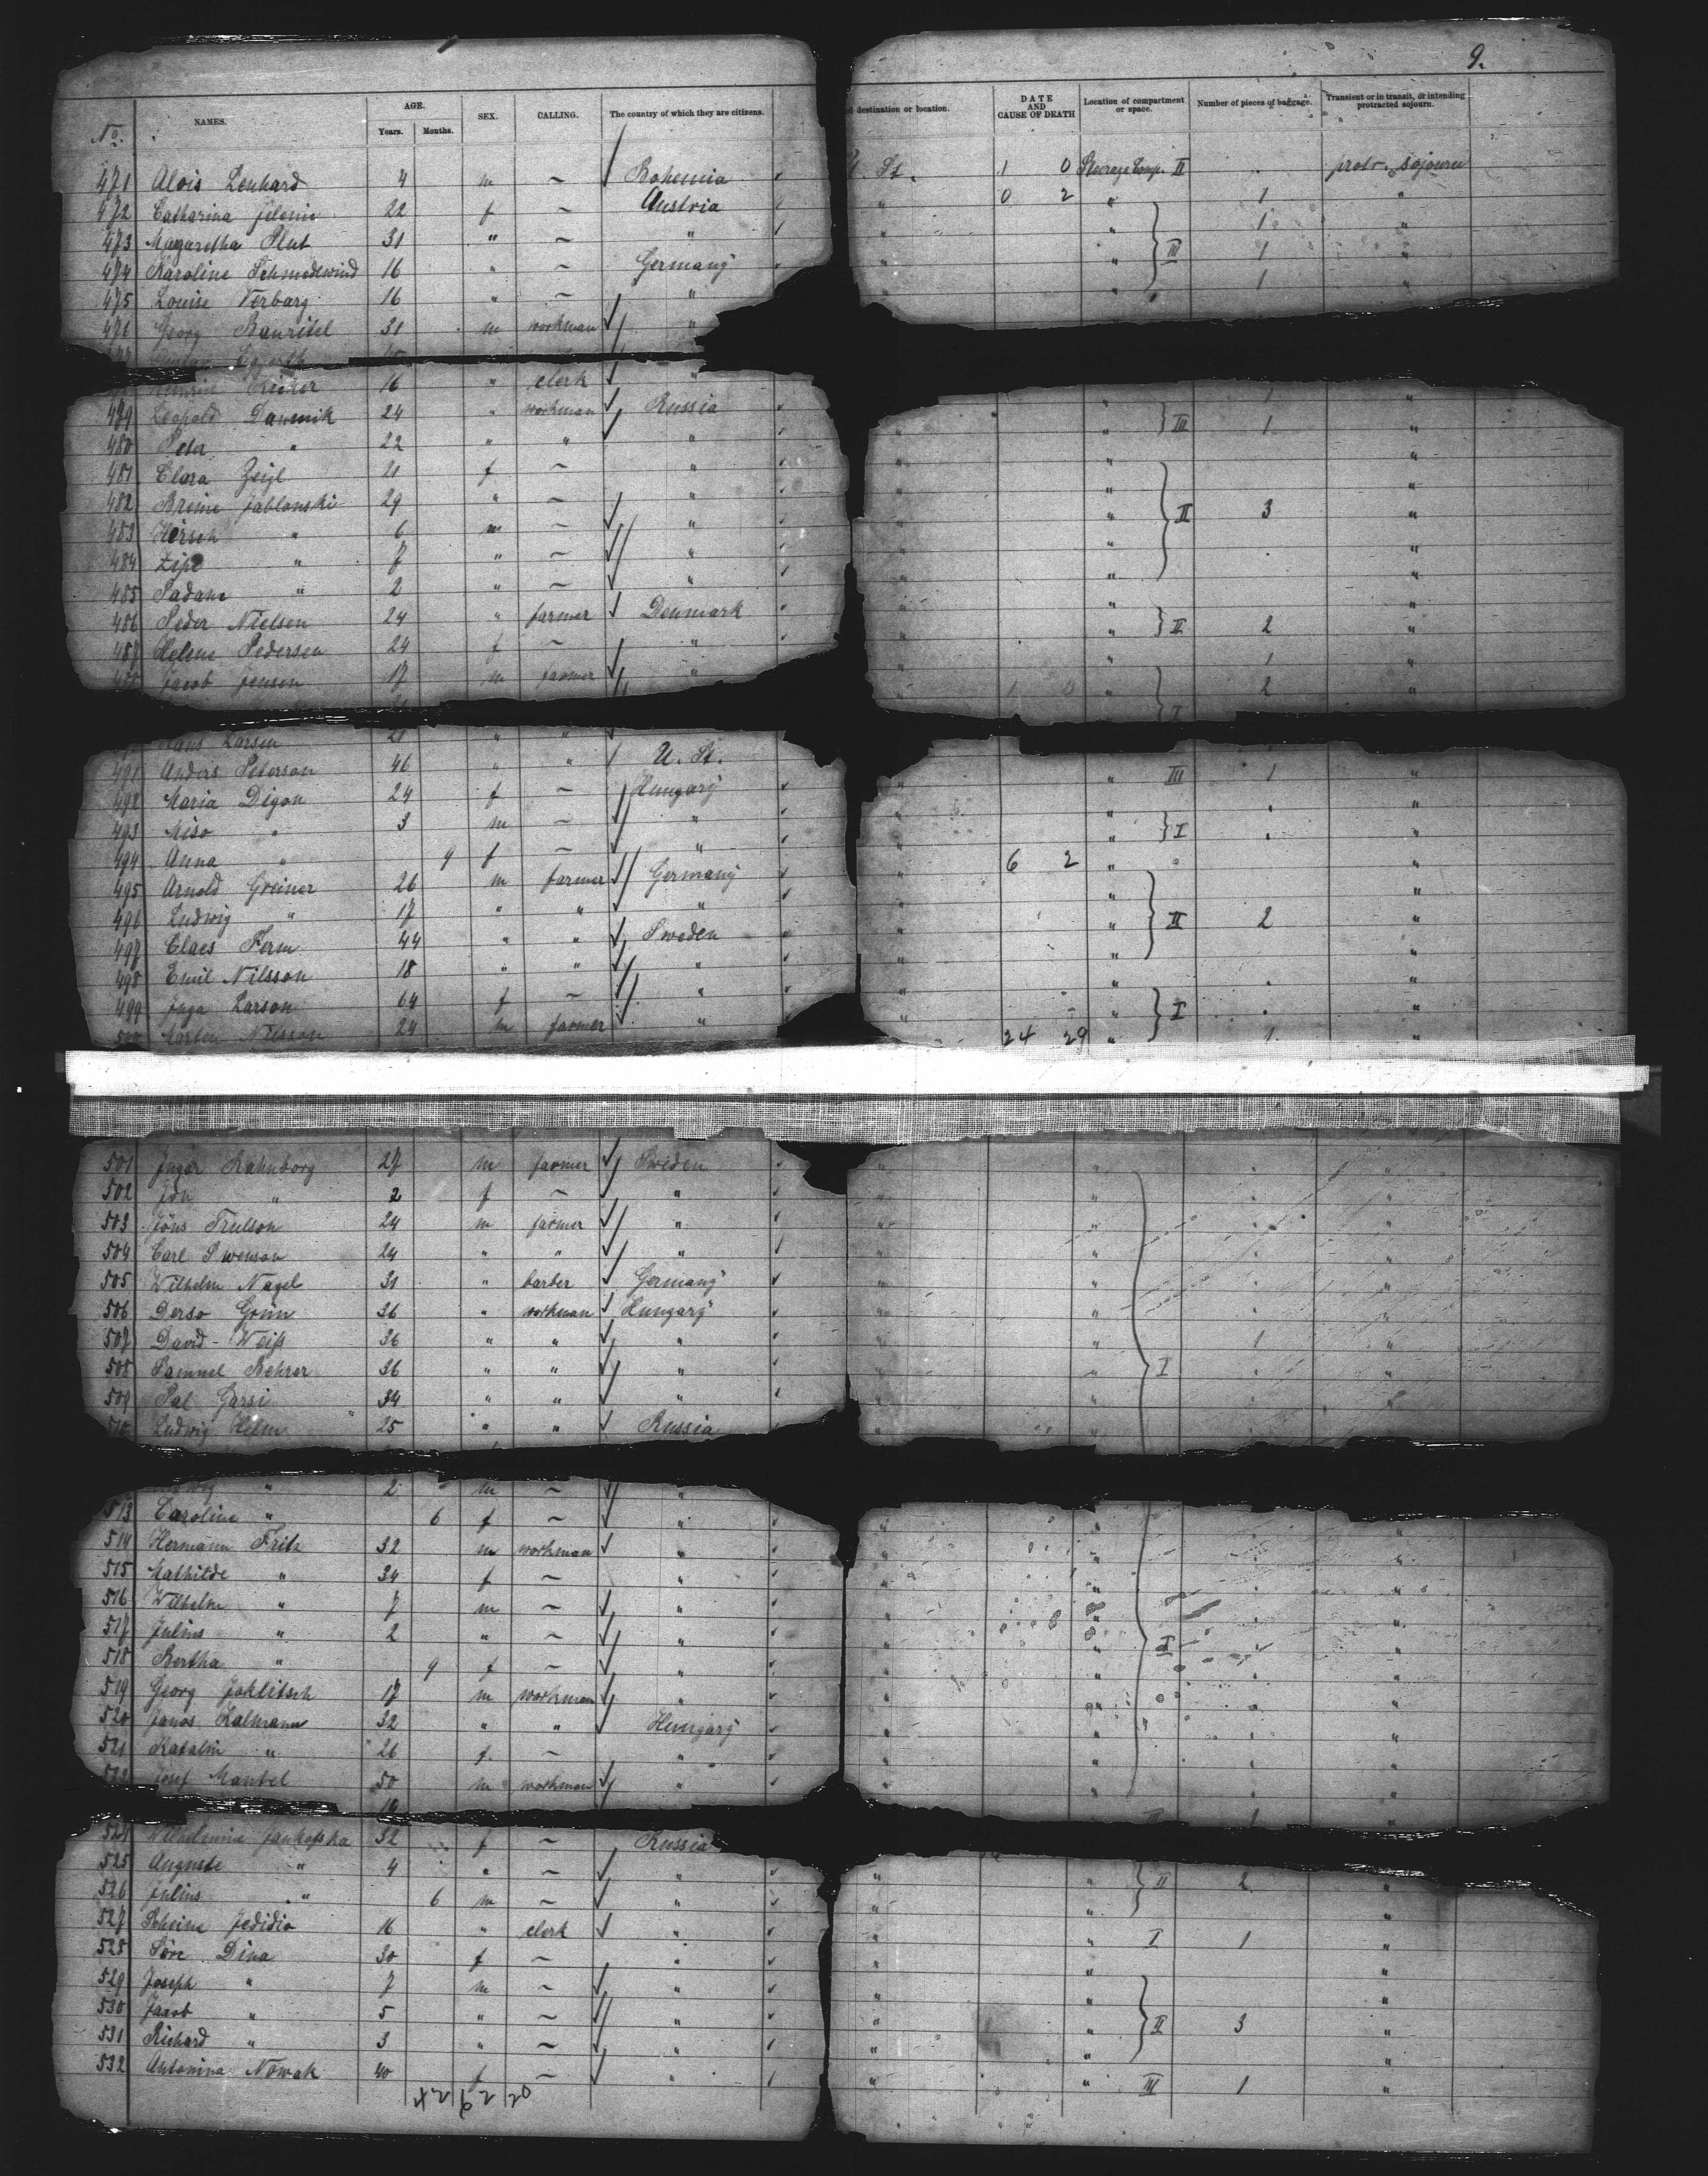 9.
No. NAMES. AGE. Years. Months. SEX. CALLING. The country of which they are citizens. destination or location. DATE AND CAUSE OF DEATH Location of compartment or space. Number of pieces of baggage. Transient or in transit, or intending protracted sojourn.
471 Alois Lenhard 4 m ~ Bohemia U. St. 1 0 Steerage Comp. II protr. sojourn
472 Catharina 22 f ~ Austria " 0 2 " 1 "
473 Margaretha Plut 31 " ~ " " " 1 "
474 Karoline Schmedewind 16 " ~ Germany " " III 1 "
475 Louise Verbarg 16 " ~ " " " 1 "
476 Georg 31 m workman "
16 " clerk " 1 "
479 Leopold 24 " workman Russia " " III 1 "
480 Peter " 22 " " " " " "
481 Clara Zeigl 21 f ~ " " " "
482 Jablonski 29 " ~ " " " II 3 "
483 Hirsch " 6 m ~ " " " "
484 Zipe " 7 " ~ " " " "
485 " 2 " ~ " " " "
486 Peder Nielsen 24 " farmer Denmark " " II 2 "
487 Helene Pedersen 24 f ~ " " " 1 "
488 Jacob Jensen 17 m farmer " " " 2 "
I
Hans Larsen 21 " "
491 Anders Peterson 46 " " U. St. " III 1 "
492 Maria Digon 24 f ~ Hungary " " "
493 Miso " 3 m ~ " " " I "
494 Anna " 9 f ~ " " 6 2 " "
495 Arnold Greiner 26 m farmer Germany " " "
496 Ludwig " 17 " " " " " II 2 "
497 Claes Ferm 44 " " Sweden " " "
498 Emil Nilsson 18 " " " " " "
499 Inga Larson 64 f ~ " " " I "
500 Marten Nilsson 24 m farmer " 24 29 " 1 "
501 Ingar Rahnborg 27 m farmer Sweden " " "
502 " 2 f ~ " " " "
503 Jöns Trulson 24 m farmer " " " "
504 Carl Swenson 24 " " " " " "
505 Wilhelm Nagel 31 " barber Germany " " "
506 Derso Grün 36 " workman Hungary " " "
507 David Weiß 36 " " " " " 1 "
508 Samuel Rehrer 36 " " " " " I "
509 Pal Garsi 34 " " " " " "
510 Ludwig Helm 25 " " Russia " " "
" 2 m ~ "
513 Caroline " 6 f ~ " " " "
514 Hermann Fritz 32 m workman " " " "
515 Mathilde " 34 f ~ " " " "
516 Wilhelm " 7 m ~ " " " "
517 Julius " 2 " ~ " " " I "
518 Bertha " 9 f ~ " " " "
519 Georg Jaklitsch 17 m workman " " " "
520 Janos Kalmann 32 " " Hungary " " "
521 Katalin " 26 f ~ " " " "
522 Josef Mantel 50 m workman " " " "
524 Wilhelmine Jankofska 32 f ~ Russia
525 Auguste " 4 " ~ " " " II 2 "
526 Julius " 6 m ~ " " " "
527 Jedidio 16 " clerk " " " I 1 "
528 Söre Dina 30 f ~ " " " "
529 Joseph " 7 m ~ " " " "
530 Jacob " 5 " ~ " " " II 3 "
531 Richard " 3 " ~ " " " "
532 Antonina Nowak 40 f ~ " " " III 1 "
42 62 20